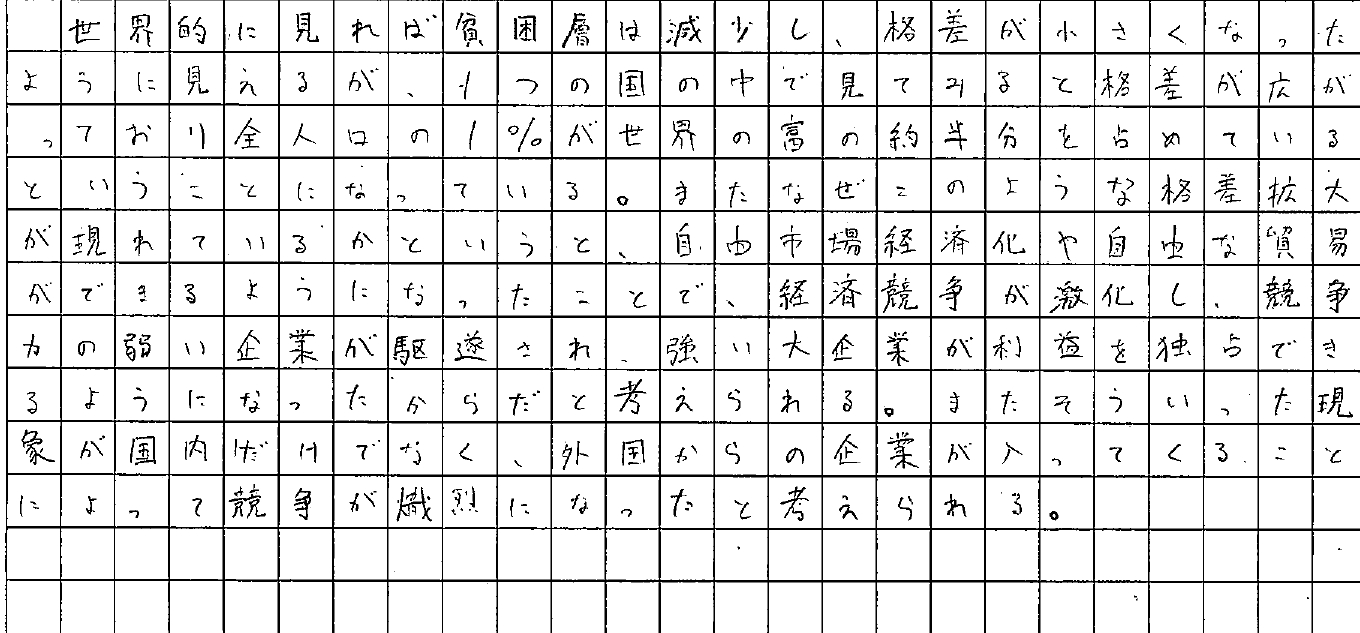 世界的に見れば貧困層は減少し、格差が小さくなった
ように見えるが、1つの国の中で見てみると格差が広が
っており全人口の1%が世界の富の約半分を占めている
ということになっている。またなぜこのような格差拡大
が現れているかというと、自由市場経済化や自由な貿易
ができるようになったことで、経済競争が激化し、競争
力の弱い企業が駆逐され、強い大企業が利益を独占でき
るようになったからだと考えられる。またそういった現
象が国内だけでなく、外国からの企業が入ってくること
によって競争が熾烈になったと考えられる。